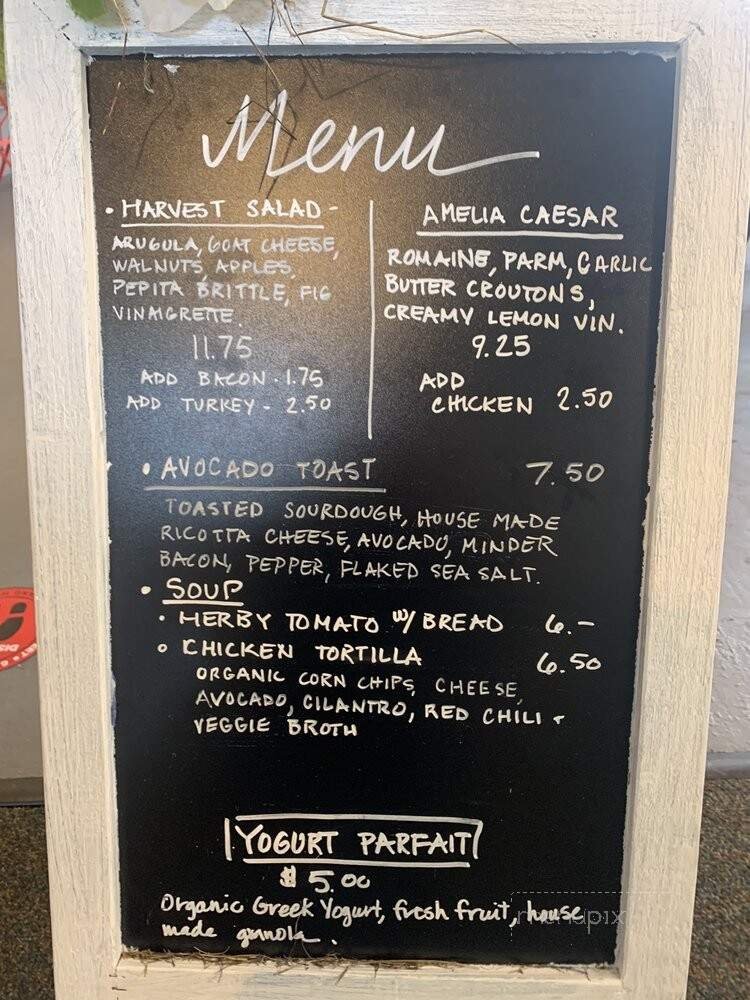 Menu
• HARVEST SALAD -
ARUGULA, GOAT CHEESE,
WALNUTS, APPLES,
PEPITA BRITTLE, FIG
VINAIGRETTE.
11.75
ADD BACON - 1.75
ADD TURKEY - 2.50
AMELIA CAESAR
ROMAINE, PARM, GARLIC
BUTTER CROUTONS,
CREAMY LEMON VIN.
9.25
ADD
CHICKEN 2.50
• AVOCADO TOAST 7.50
TOASTED SOURDOUGH, HOUSE MADE
RICOTTA CHEESE, AVOCADO, MINDER
BACON, PEPPER, FLAKED SEA SALT.
• SOUP
• HERBY TOMATO W/ BREAD 6.-
• CHICKEN TORTILLA 6.50
ORGANIC CORN CHIPS, CHEESE,
AVOCADO, CILANTRO, RED CHILI +
VEGGIE BROTH
YOGURT PARFAIT
$5.00
Organic Greek Yogurt, fresh fruit, house
made granola.
menupix